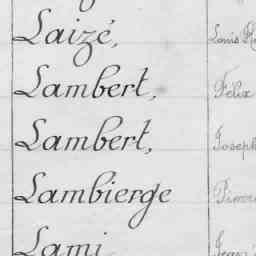 Laizé, Louis
Lambert, Félix
Lambert, Joseph
Lambierge
Lami